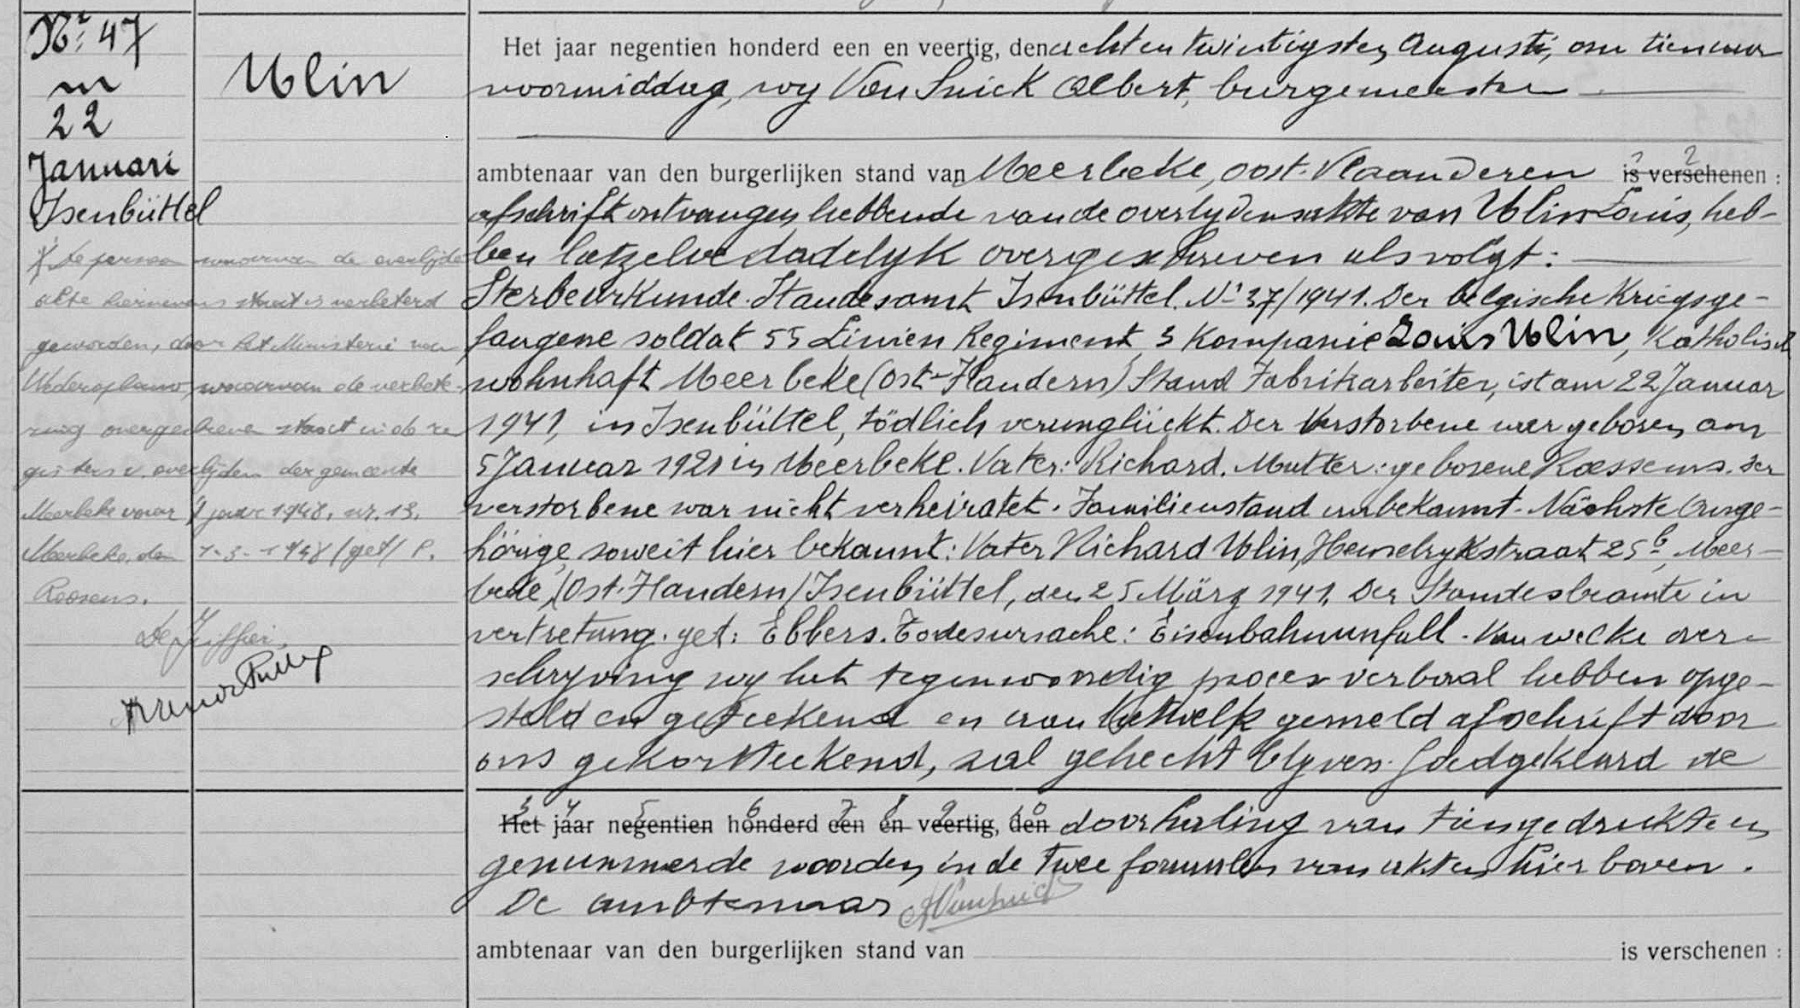 Nr 47
m
22
Januari
Isenbüttel
Ulin
* De persoon waarvan de overlijdens
akte hiernevens staat is verbeterd
geworden, door het Ministerie van
Wederopbouw, waarvan de verbete-
ring overgeschreven staat in de re
gisters v. overlijden der gemeente
Meerbeke voor 't jaar 1948, nr. 13.
Meerbeke, den 1-3-1948 (get) P.
Roosens.
De Griffier
Het jaar negentien honderd een en veertig, den achten twintigsten Augusti, om tien uur
voormiddag, wy Van Snick Albert, burgemeester
ambtenaar van den burgerlijken stand van Meerbeke, Oost-Vlaanderen is verschenen :
afschrift ontvangen hebbende van de overlydensakte van Ulin Louis, heb-
ben hetzelve dadelyk overgeschreven als volgt :
Sterbeurkunde. Standesamt Isenbüttel. Nr 37/1941. Der belgische Kriegsge-
fangene soldat 55 Linien Regiment, 3 Kompanie Louis Ulin, Katholisch
wohnhaft Meerbeke (Ost-Flandern) Stand Fabrikarbeiter, ist am 22 Januar
1941, in Isenbüttel, tödlich verunglückt. Der Verstorbene war geboren am
5 Januar 1921 in Meerbeke. Vater: Richard. Mutter: geborene Roessems. Der
verstorbene war nicht verheiratet. Familienstand unbekannt. Nächste Ange-
hörige, soweit hier bekannt: Vater Richard Ulin, Hemelrykstraat 25b, Meer-
beke, (Ost-Flandern) Isenbüttel, den 25 März 1941. Der Standesbeamte in
vertretung. get: Ebbers. Todesursache: Eisenbahnunfall. Van welke over-
schryving wy het tegenwoordig proces verbaal hebben opge-
steld en geteekend en aan hetwelk gemeld afschrift door
ons gekortteekend, zal gehecht blyven. Goedgekeurd de
Het jaar negentien honderd een en veertig, den doorhaling van tien gedrukte en
genummerde woorden in de twee formulen van akten hierboven.
De ambtenaar AVansnick
ambtenaar van den burgerlijken stand van is verschenen :